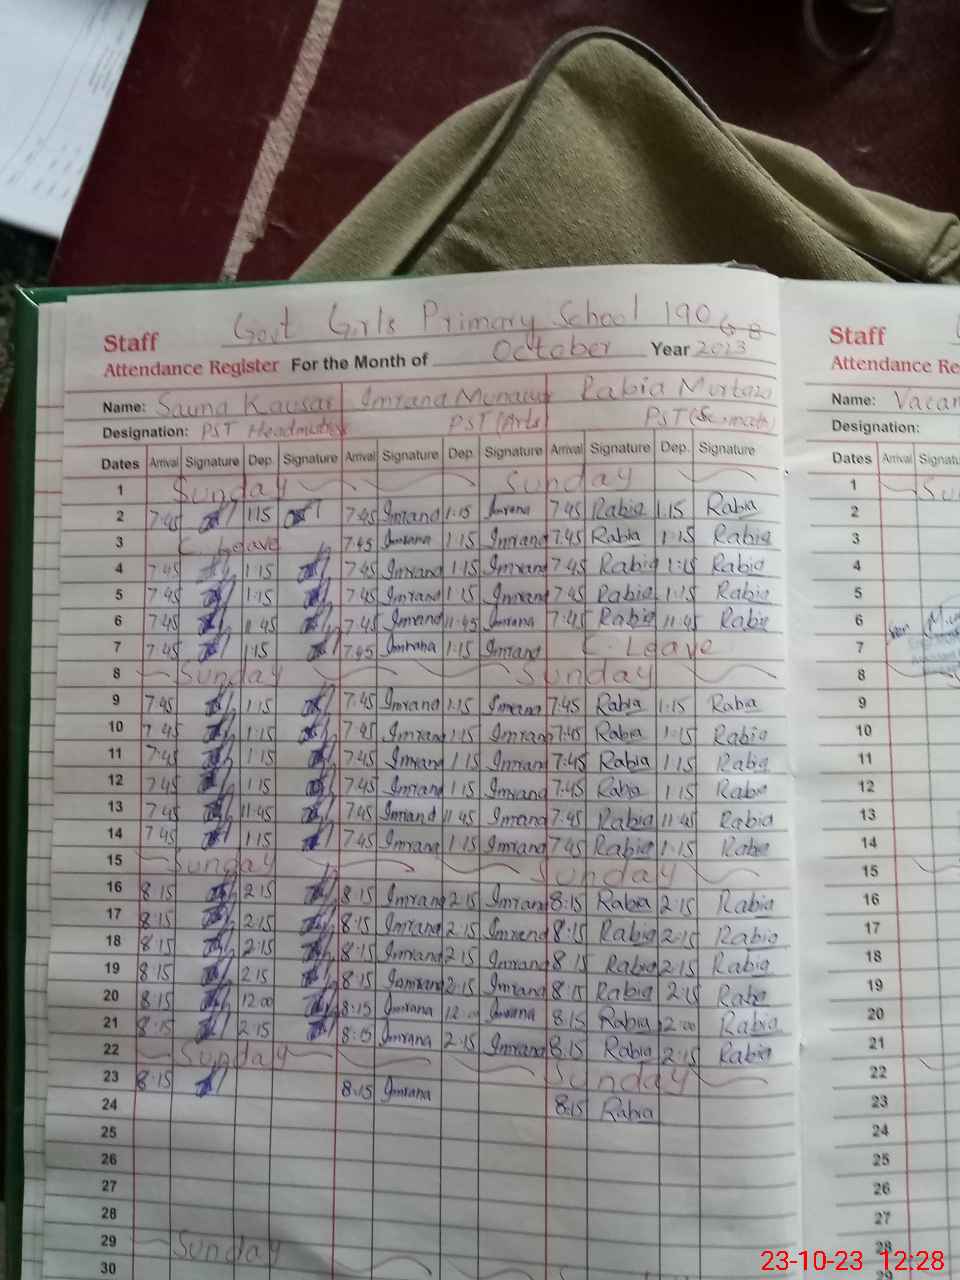 Govt Girls Primary School 190 GB
Staff
Attendance Register For the Month of October Year 2023
Name: Saima Kausar Imrana Munawar Rabia Murtaza
Designation: PST Headmistress PST (Arts) PST (Sc.math)
Dates Arrival Signature Dep. Signature Arrival Signature Dep. Signature Arrival Signature Dep. Signature
1 Sunday Sunday
2 7:45 1:15 7:45 Imrana 1:15 Imrana 7:45 Rabia 1:15 Rabia
3 C. Leave 7.45 Imrana 1:15 Imrana 7.45 Rabia 1:15 Rabia
4 7:45 1:15 7:45 Imrana 1:15 Imrana 7:45 Rabia 1:15 Rabia
5 7:45 1:15 7:45 Imrana 1:15 Imrana 7:45 Rabia 1:15 Rabia
6 7:45 11:45 7:45 Imrana 11:45 Imrana 7:45 Rabia 11:45 Rabia
7 7:45 1:15 7:45 Imrana 1:15 Imrana C. Leave
8 Sunday Sunday
9 7:45 1:15 7:45 Imrana 1:15 Imrana 7:45 Rabia 1:15 Rabia
10 7:45 1:15 7:45 Imrana 1:15 Imrana 7:45 Rabia 1:15 Rabia
11 7:45 1:15 7:45 Imrana 1:15 Imrana 7:45 Rabia 1:15 Rabia
12 7:45 1:15 7:45 Imrana 1:15 Imrana 7:45 Rabia 1:15 Rabia
13 7:45 11:45 7:45 Imrana 11:45 Imrana 7:45 Rabia 11:45 Rabia
14 7:45 1:15 7:45 Imrana 1:15 Imrana 7:45 Rabia 1:15 Rabia
15 Sunday Sunday
16 8:15 2:15 8:15 Imrana 2:15 Imrana 8:15 Rabia 2:15 Rabia
17 8:15 2:15 8:15 Imrana 2:15 Imrana 8:15 Rabia 2:15 Rabia
18 8:15 2:15 8:15 Imrana 2:15 Imrana 8:15 Rabia 2:15 Rabia
19 8:15 2:15 8:15 Imrana 2:15 Imrana 8:15 Rabia 2:15 Rabia
20 8:15 12:00 8:15 Imrana 12:00 Imrana 8:15 Rabia 2:00 Rabia
21 8:15 2:15 8:15 Imrana 2:15 Imrana 8:15 Rabia 2:15 Rabia
22 Sunday Sunday
23 8:15 8:15 Imrana 8:15 Rabia
24
25
26
27
28
29 Sunday
30
Staff
Attendance Re
Name: Vacan
Designation:
Dates Arrival Signatu
1 Su
2
3
4
5
6
7
8
9
10
11
12
13
14
15
16
17
18
19
20
21
22
23
24
25
26
27
28
29
23-10-23 12:28